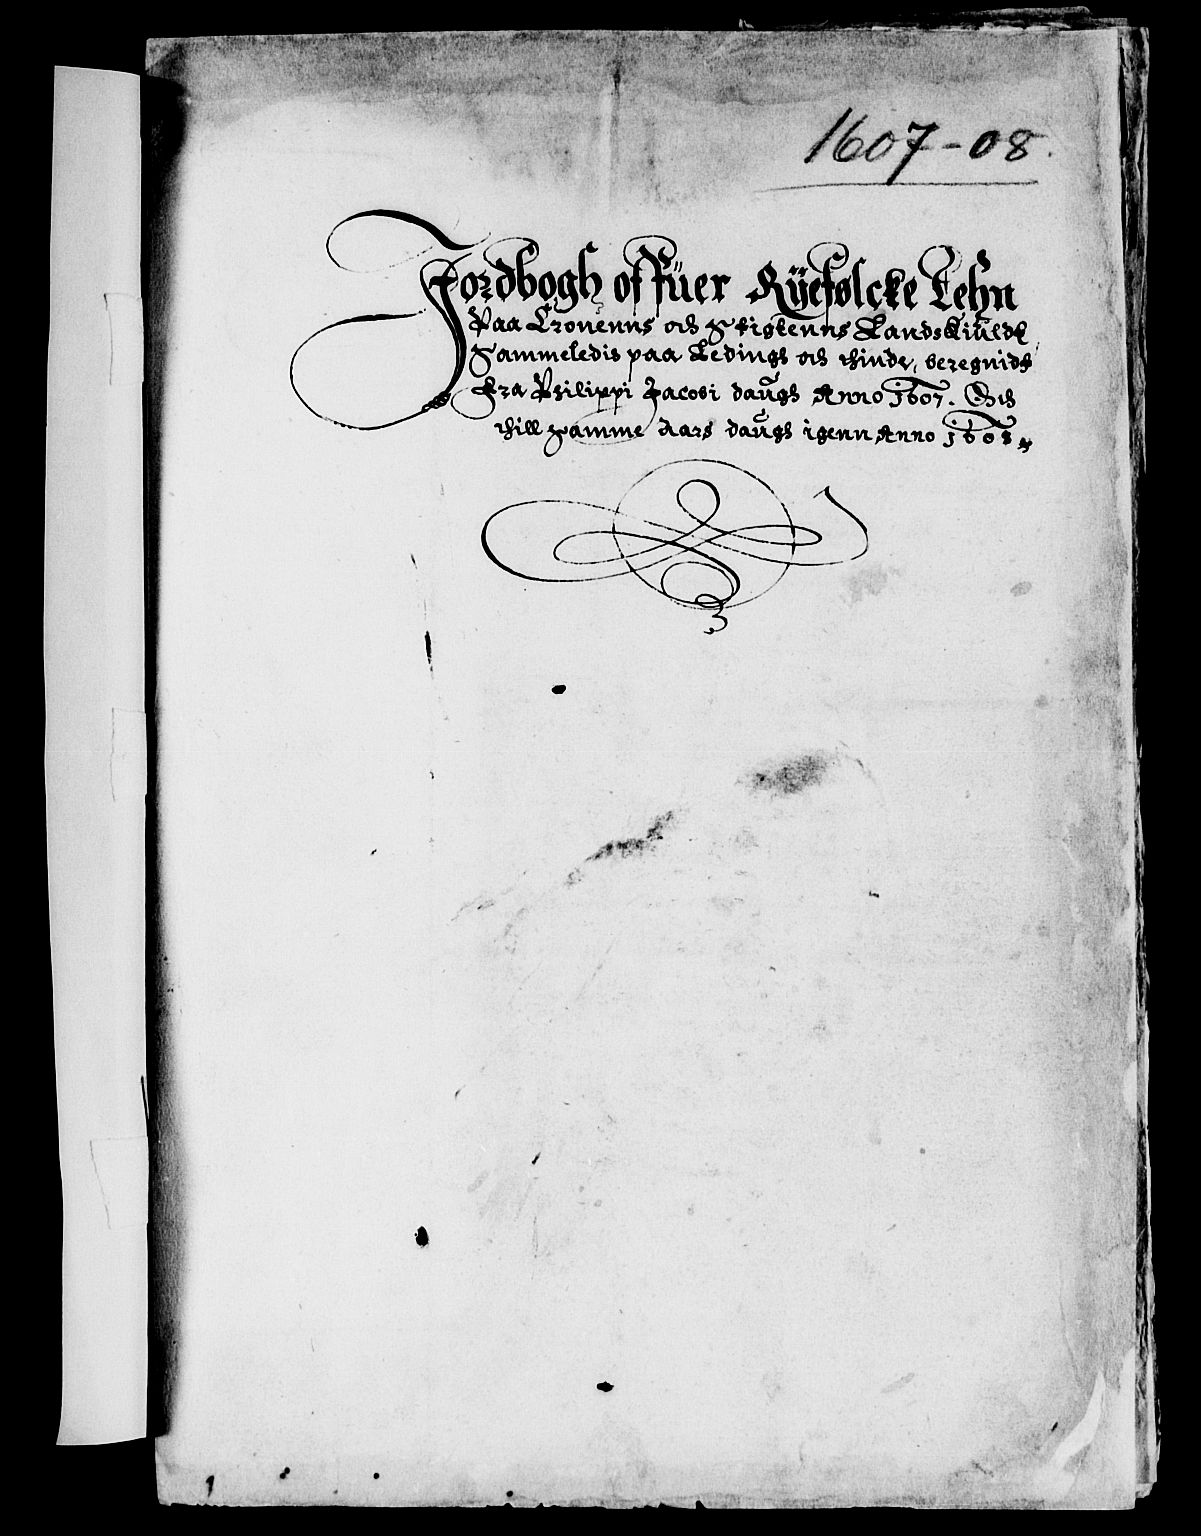 1607-08.
Jordbogh offüer Rÿefølcke Lehn
Paa Cronenns och Stigtenns Landskiuldt,
Sammeledis paa Ledings och thinde, beregnidt
Fra Philippi Jacobi daugh Anno 1607. Och
thill Samme Aars daugh igenn Anno 1608
1